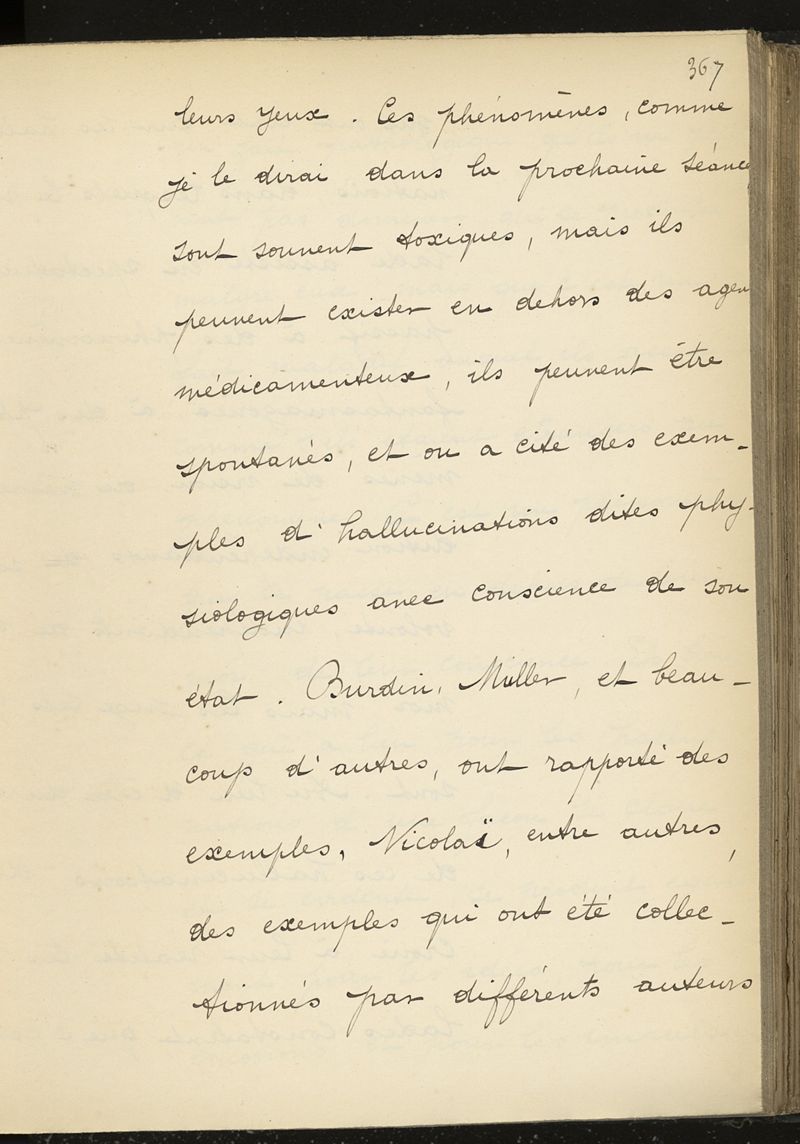 367
leurs yeux. Ces phénomènes, comme
je le dirai dans la prochaine séance
sont souvent toxiques, mais ils
peuvent exister en dehors des agen
médicamenteux, ils peuvent être
spontanés, et on a cité des exem-
ples d'hallucinations dites phy-
siologiques avec conscience de son
état. Burdin, Muller, et beau-
coup d'autres, ont rapporté des
exemples, Nicolaï, entre autres,
des exemples qui ont été collec-
tionnés par différents auteurs